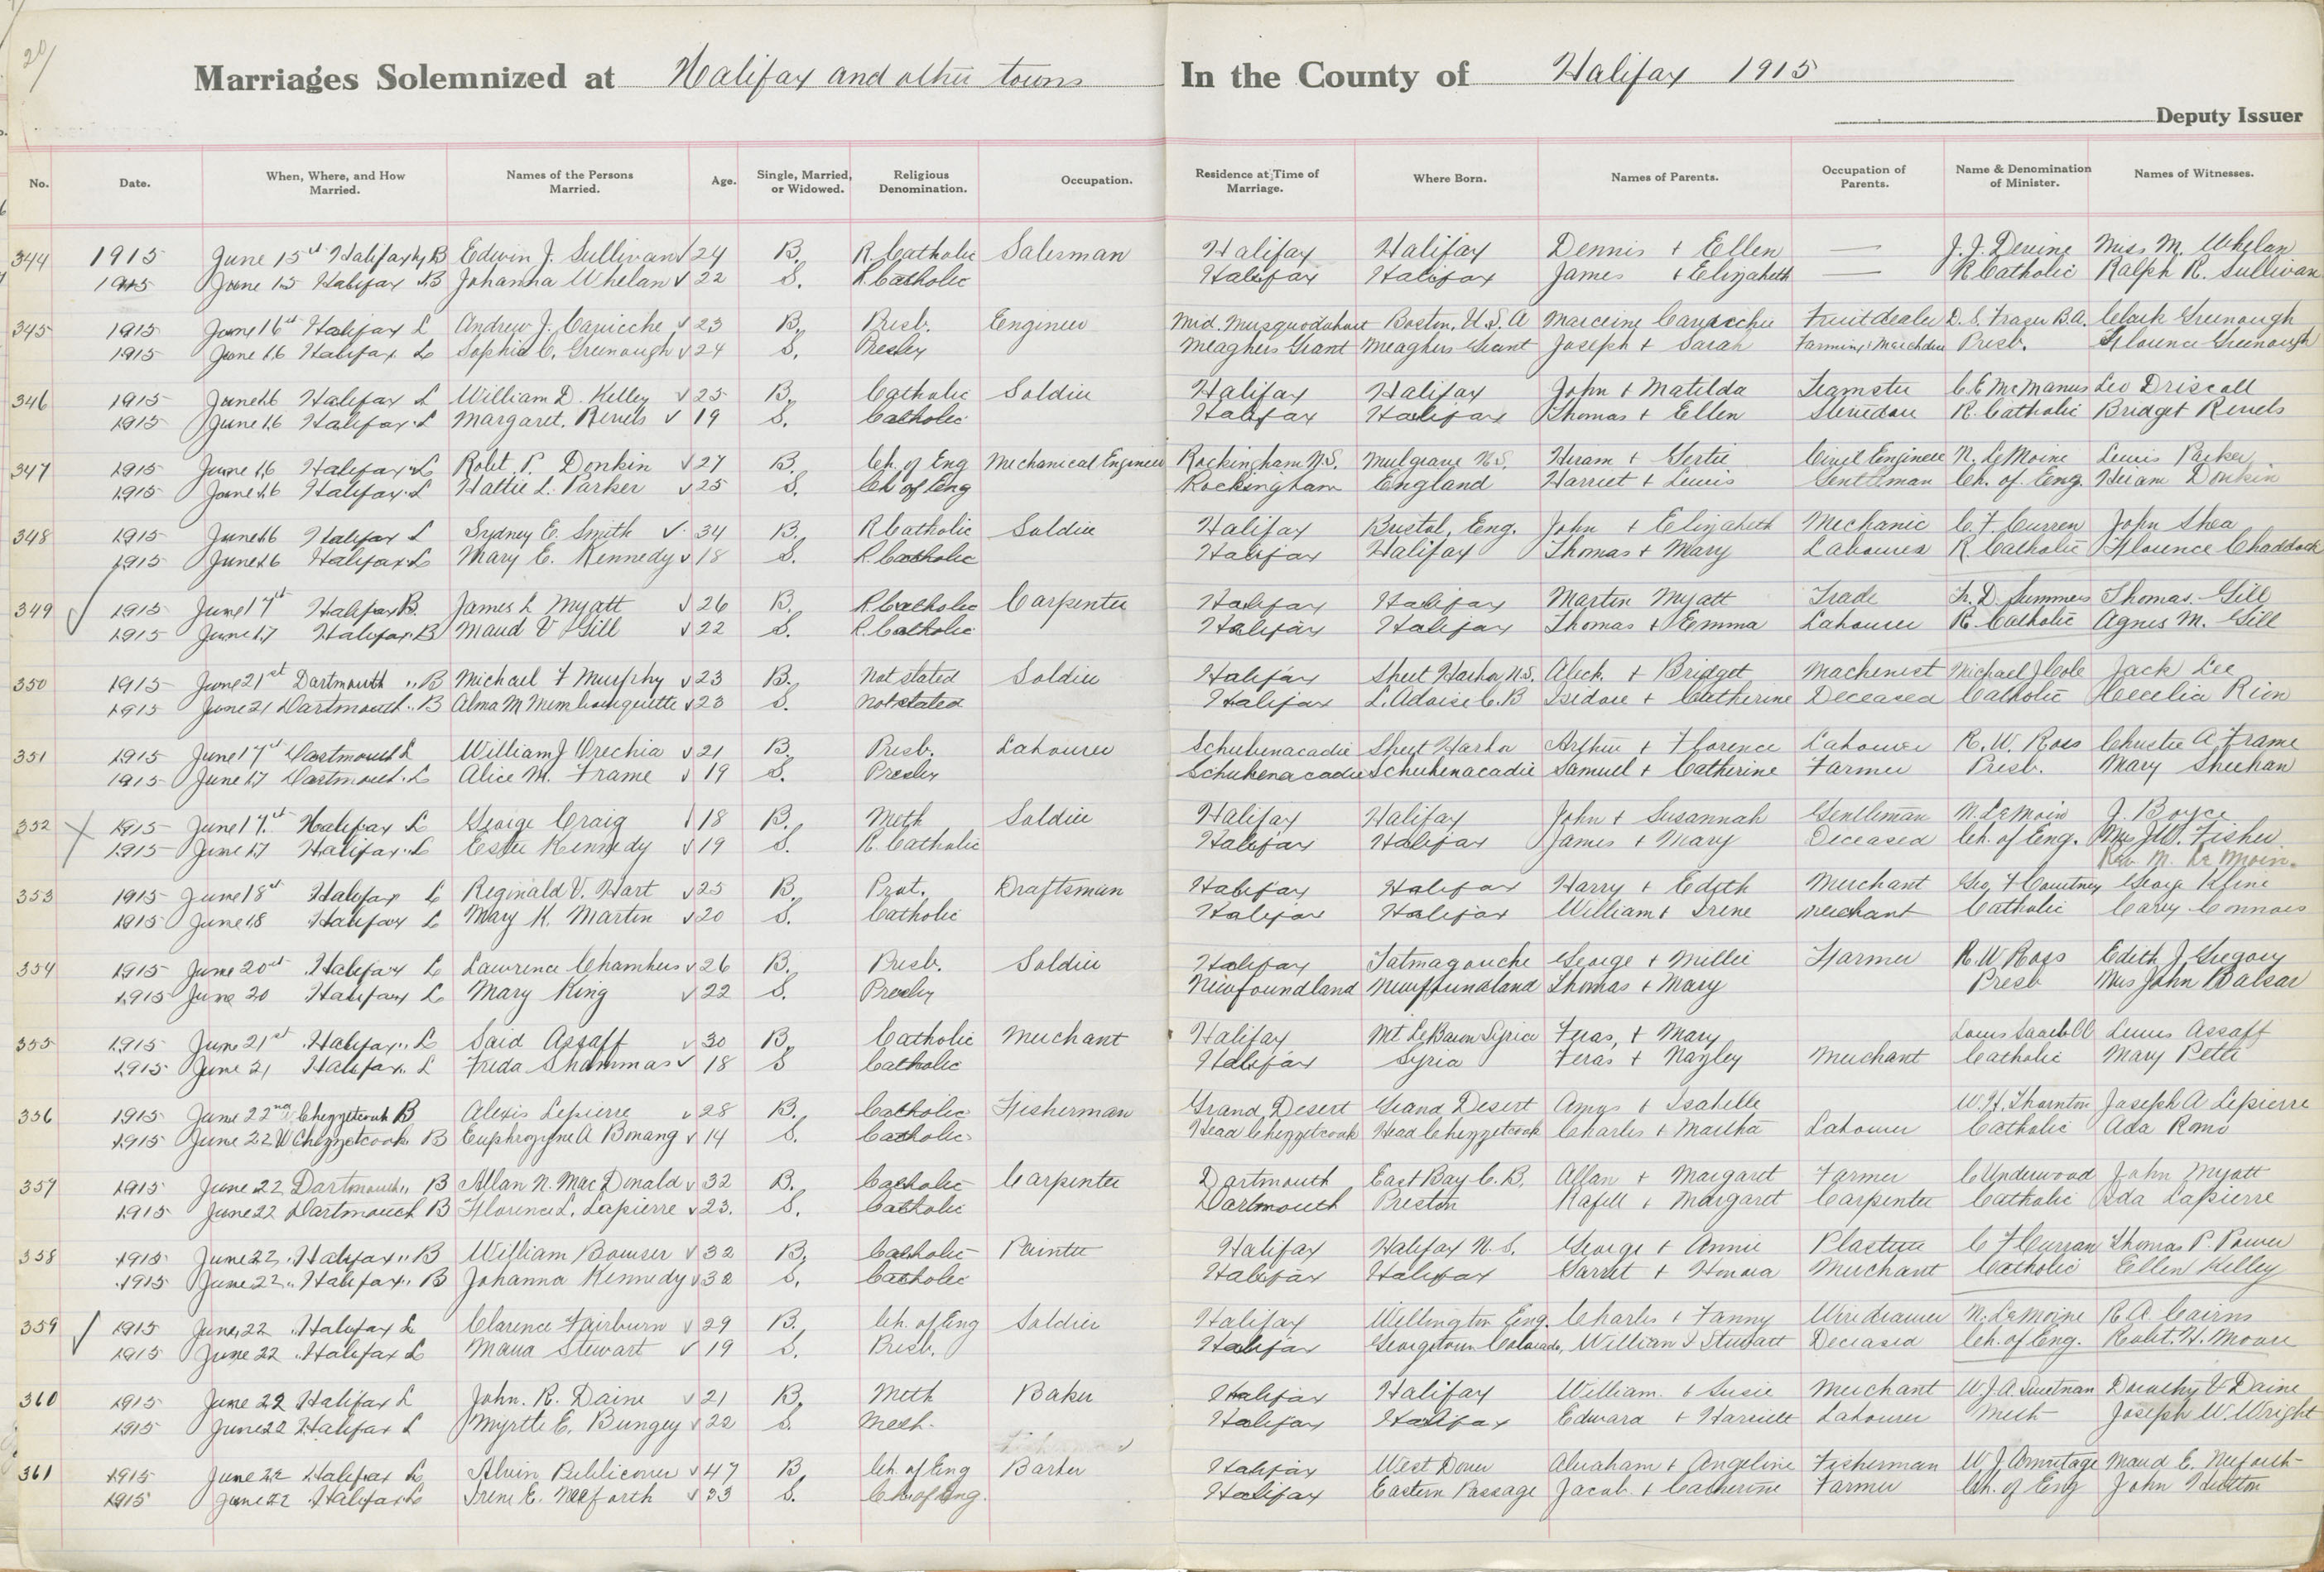 20/
Marriages Solemnized at Halifax and other towns In the County of Halifax 1915
Deputy Issuer
No. Date. When, Where, and How Married. Names of the Persons Married. Age. Single, Married, or Widowed. Religious Denomination. Occupation. Residence at Time of Marriage. Where Born. Names of Parents. Occupation of Parents. Name & Denomination of Minister. Names of Witnesses.
344 1915 June 15st Halifax by B Edwin J. Sullivan 24 B. R. Catholic Salesman Halifax Halifax Dennis + Ellen — J. J. Devine Miss M. Whelan
1915 June 15 Halifax B Johanna Whelan 22 S. R. Catholic Halifax Halifax James + Elizabeth — R Catholic Ralph R. Sullivan
345 1915 June 16st Halifax L Andrew J. 23 B. Presb. Engineer Mid. Musquodoboit Boston, U.S.A Fruit dealer D. S. Fraser B.A. Clark Greenough
1915 June 16 Halifax L Sophia C. Greenough 24 S. Presby Meaghers Grant Meaghers Grant Joseph + Sarah Presb. Florence Greenough
346 1915 June 16 Halifax L William D. Kelley 25 B. Catholic Soldier Halifax Halifax John + Matilda Teamster C. E McManus Leo Driscoll
1915 June 16 Halifax L Margaret. 19 S. Catholic Halifax Halifax Thomas + Ellen R. Catholic Bridget
347 1915 June 16 Halifax L Robt. P. Donkin 27 B. Ch. of Eng Mechanical Engineer Rockingham N.S. Mulgrave N.S. Hiram + Gertie Civil Engineer N. LeMoine Lewis Parker
1915 June 16 Halifax L Hattie L. Parker 25 S. Ch of Eng Rockingham England Harriet + Lewis Gentleman Ch. of Eng. Hiram Donkin
348 1915 June 16 Halifax L Sydney E. Smith 34 B. R Catholic Soldier Halifax Bristol, Eng. John + Elizabeth Mechanic C. F Curren John Shea
1915 June 16 Halifax L Mary E. Kennedy 18 S. R. Catholic Halifax Halifax Thomas + Mary Labourer R Catholic Florence Chaddock
349 1915 June 17st Halifax B. James L Myatt 26 B. R. Catholic Carpenter Halifax Halifax Martin Myatt Trade Fr. D. Summers Thomas Gill
1915 June 17 Halifax B Maud V Gill 22 S. R. Catholic Halifax Halifax Thomas + Emma Labourer R. Catholic Agnes M. Gill
350 1915 June 21st Dartmouth " B Michael F Murphy 23 B. Not stated Soldier Halifax Sheet Harbor, N.S. Aleck + Bridget Machenist Michael J Cole Jack Lee
1915 June 21 Dartmouth " B Alma M 23 S. Not stated Halifax L. Adoise C.B Isidore + Catherine Deceased Catholic Cecelia Rion
351 1915 June 17st Dartmouth L William J 21 B. Presb. Labourer Schubenacadie Sheet Harbor Arthur + Florence Labourer R. W. Ross A Frame
1915 June 17 Dartmouth L Alice M. Frame 19 S. Presby Schubenacadie Schubenacadie Samuel + Catherine Farmer Presb. Mary Sheehan
352 1915 June 17st Halifax L George Craig 18 B. Meth Soldier Halifax Halifax John + Susannah Gentleman N. LeMoin J. Boyce
1915 June 17 Halifax L Kennedy 19 S. R. Catholic Halifax Halifax James + Mary Deceased Ch. of Eng. Mrs J.W. Fisher
Rev M. Le Moin.
353 1915 June 18st Halifax L Reginald V. Hart 25 B. Prot. Draftsman Halifax Halifax Harry + Edith Merchant Geo. F Courtney George Kline
1915 June 18 Halifax L Mary K. Martin 20 S. Catholic Halifax Halifax William + Irene Merchant Catholic Carey Connors
354 1915 June 20st Halifax L Lawrence Chambers 26 B. Presb. Soldier Halifax Tatmagouche George + Millie Farmer R. W Ross Edith J Gregory
1915 June 20 Halifax L Mary King 22 S. Presby Newfoundland Newfoundland Thomas + Mary Presb Mrs John Balsar
355 1915 June 21st Halifax L Said Assaff 30 B. Catholic Merchant Halifax Mt LeBanon Syria Feras, + Mary Louis Assaff
1915 June 21 Halifax L Freda Shammas 18 S Catholic Halifax Syria Feras + Nazley Merchant Catholic Mary Pette
356 1915 June 22nd W Chezzetcook B Alexis Lepierre 28 B. Catholic Fisherman Grand Desert Grand Desert Amos + Isabelle W. H. Thornton Joseph A Lepierre
1915 June 22 W Chezzetcook B Euphrozyne A Bonang 14 S. Catholic Head Chezzetcook Head Chezzetcook Charles + Martha Labourer Catholic Ada Roma
357 1915 June 22 Dartmouth " B Allan N. MacDonald 32 B. Catholic Carpenter Dartmouth East Bay C.B. Allan + Margaret Farmer C Underwood John Myatt
1915 June 22 Dartmouth B Florence L. Lapierre 23. S. Catholic Dartmouth Preston Rafell + Margaret Carpenter Catholic Ida Lapierre
358 1915 June 22 Halifax " B William Bowser 32 B. Catholic Painter Halifax Halifax N.S. George + Annie Plasterer C F Curran Thomas P. Power
1915 June 22 " Halifax " B Johanna Kennedy 32 S. Catholic Halifax Halifax Garret + Honora Merchant Catholic Ellen Kelley
359 1915 June 22 Halifax L Clarence Fairburn 29 B. Ch. of Eng Soldier Halifax Wellington Eng. Charles + Fanny Wiredrawer N. LeMoine R. A. Cairns
1915 June 22 Halifax L Stewart 19 S. Presb. Halifax Georgetown Colorado, William I Stewart Deceased Ch. of Eng. Robt. H. Moore
360 1915 June 22 Halifax L John. R. Daine 21 B. Meth Baker Halifax Halifax William + Susie Merchant W. J. A. Swetnan Dorothy V Daine
1915 June 22 Halifax L Myrtle E. Bungey 22 S. Meth. Halifax Halifax Edward + Harriett Labourer Meth Joseph W. Wright
361 1915 June 22 Halifax L Alvin Publicover 47 B. Ch. of Eng Barber Halifax West Dover Abraham + Angeline Fisherman W. J Armitage Maud E. Neiforth
1915 June 22 Halifax L Irene E. Neiforth 33 S. Ch. of Eng. Halifax Eastern Passage Jacob + Catherine Farmer Ch. of Eng John Hutton